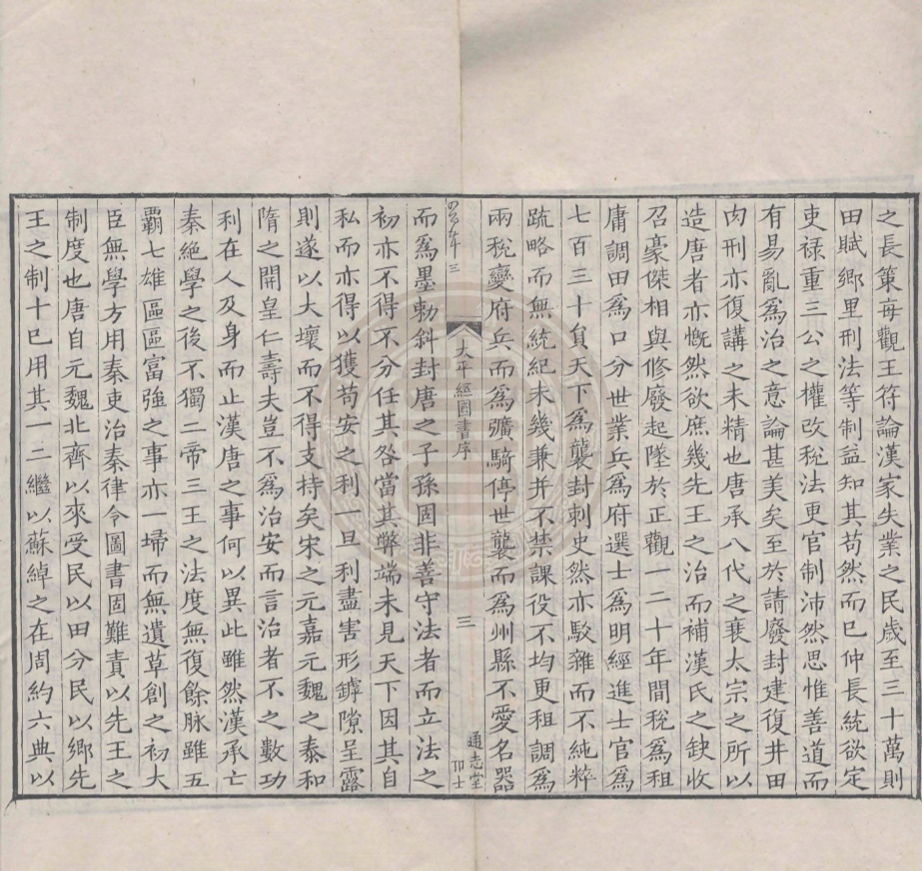 之長策每觀王符論漢家失業之民歲至三十萬則
田賦鄉里刑法等制益知其苟然而已仲長統欲定
吏祿重三公之權改稅法更官制沛然思惟善道而
有易亂爲治之意論甚美矣至於請廢封建復井田
肉刑亦復講之未精也唐承八代之衰太宗之所以
造唐者亦慨然欲庶幾先王之治而補漢氏之缺收
召豪傑相與修廢起墜於正觀一二十年間稅爲租
庸調田爲口分世業兵爲府選士爲明經進士官爲
七百三十員天下爲襲封刺史然亦駁雜而不純粹
疏略而無統紀未幾兼并不禁課役不均更租調爲
兩稅變府兵而爲彍騎停世襲而爲州縣不愛名器
太平經國書序
三
通志堂
而爲墨勅斜封唐之子孫固非善守法者而立法之
初亦不得不分任其咎當其弊端未見天下因其自
私而亦得以獲苟安之利一旦利盡害形罅隙呈露
則遂以大壞而不得支持矣宋之元嘉元魏之泰和
隋之開皇仁壽夫豈不爲治安而言治者不之數功
利在人及身而止漢唐之事何以異此雖然漢承亡
秦絕學之後不獨二帝三王之法度無復餘脉雖五
霸七雄區區富強之事亦一埽而無遺草創之初大
臣無學方用秦吏治秦律令圖書固難責以先王之
制度也唐自元魏北齊以來受民以田分民以鄉先
王之制十已用其一二繼以蘇綽之在周約六典以